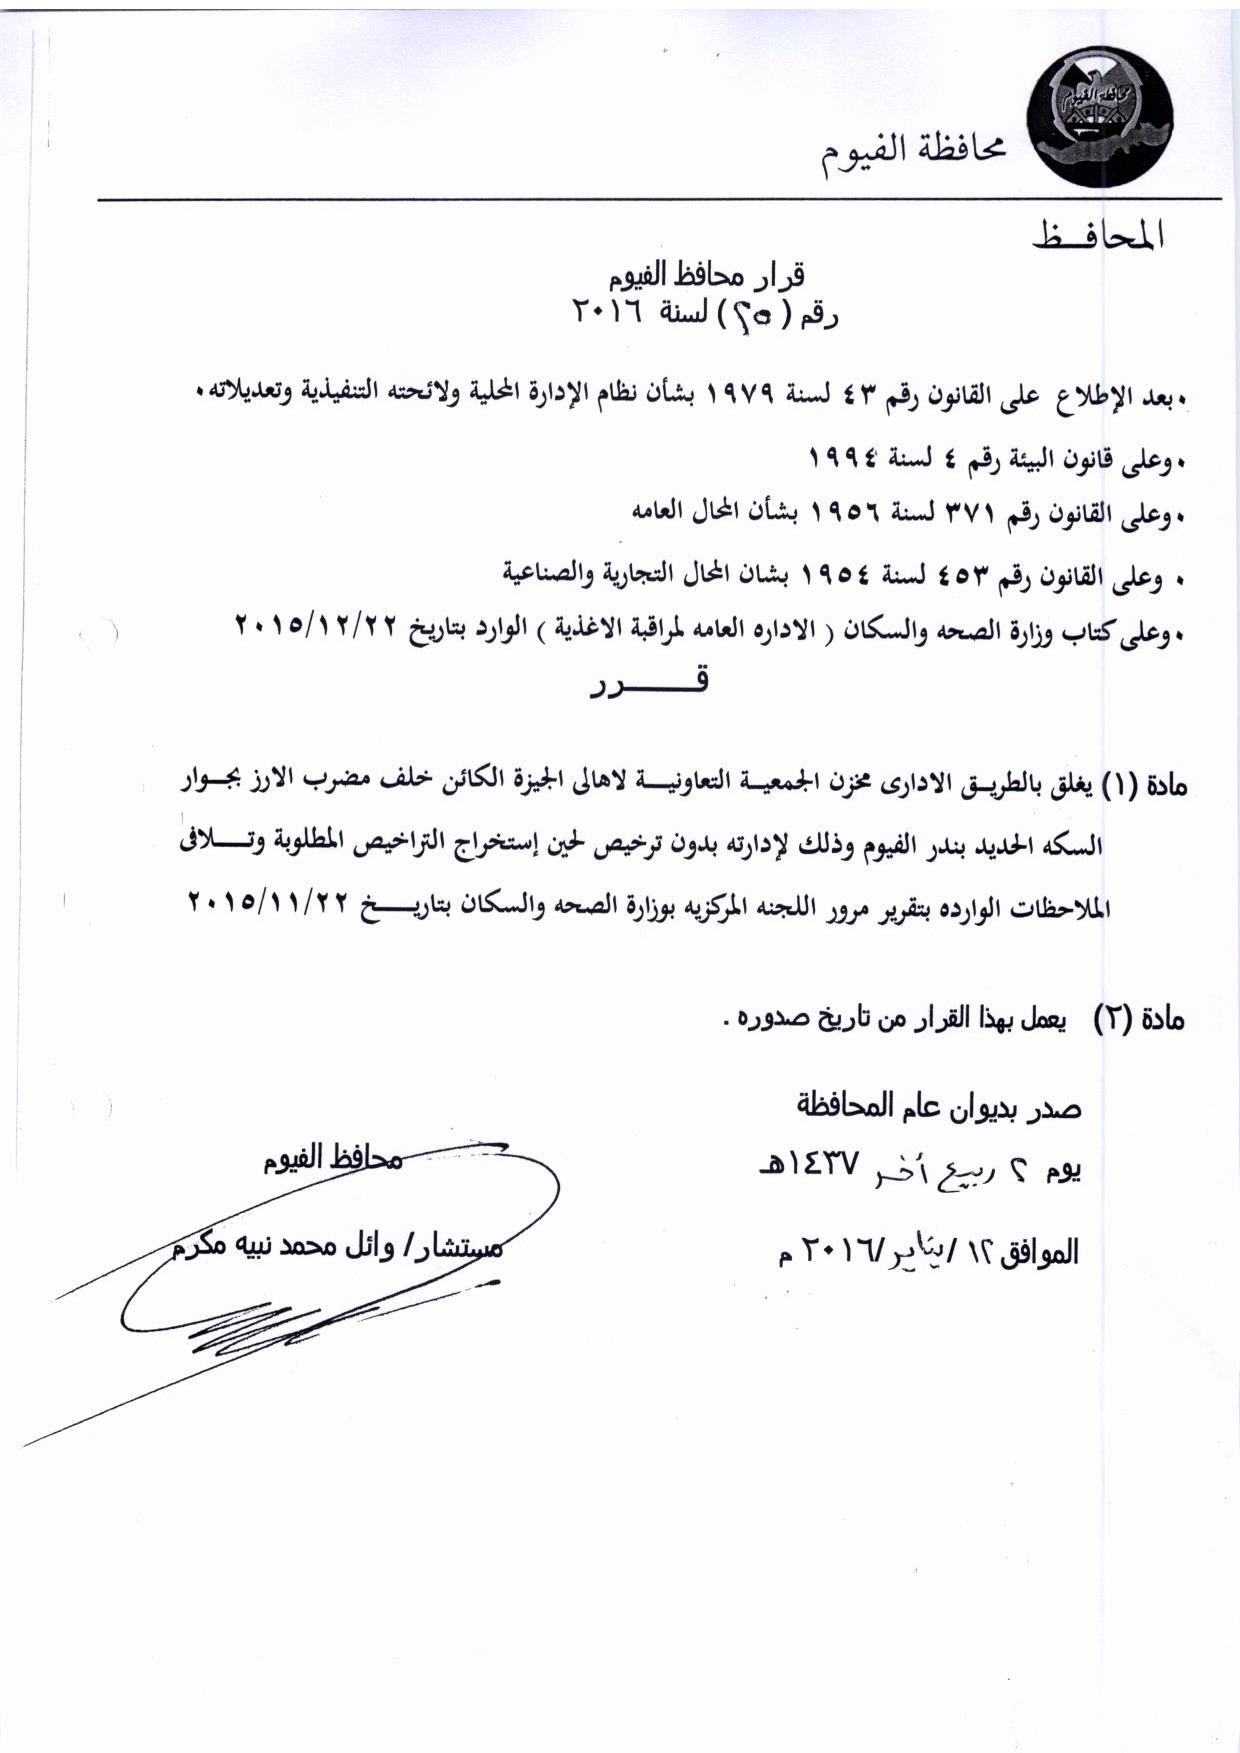 محافظة الفيوم
محافظة الفيوم
المحافــظ
قرار محافظ الفيوم
رقم (٢٥) لسنة ٢٠١٦
٠بعد الإطلاع على القانون رقم ٤٣ لسنة ١٩٧٩ بشأن نظام الإدارة المحلية ولائحته التنفيذية وتعديلاته٠
٠وعلى قانون البيئة رقم ٤ لسنة ١٩٩٤
٠وعلى القانون رقم ٣٧١ لسنة ١٩٥٦ بشأن المحال العامه
٠ وعلى القانون رقم ٤٥٣ لسنة ١٩٥٤ بشان المحال التجارية والصناعية
٠وعلى كتاب وزارة الصحه والسكان ( الاداره العامه لمراقبة الاغذية ) الوارد بتاريخ ٢٠١٥/١٢/٢٢
قـــــرر
مادة (١) يغلق بالطريــق الادارى مخزن الجمعيــة التعاونيــة لاهالى الجيزة الكائن خلف مضرب الارز بجــوار
السكه الحديد بندر الفيوم وذلك لإدارته بدون ترخيص لحين إستخراج التراخيص المطلوبة وتـــلافى
الملاحظات الوارده بتقرير مرور اللجنه المركزيه بوزارة الصحه والسكان بتاريـــخ ٢٠١٥/١١/٢٢
مادة (٢) يعمل بهذا القرار من تاريخ صدوره .
صدر بديوان عام المحافظة
يوم ٢ ربيع أخر ١٤٣٧هـ
الموافق ١٢ /يناير/٢٠١٦ م
محافظ الفيوم
مستشار/ وائل محمد نبيه مكرم